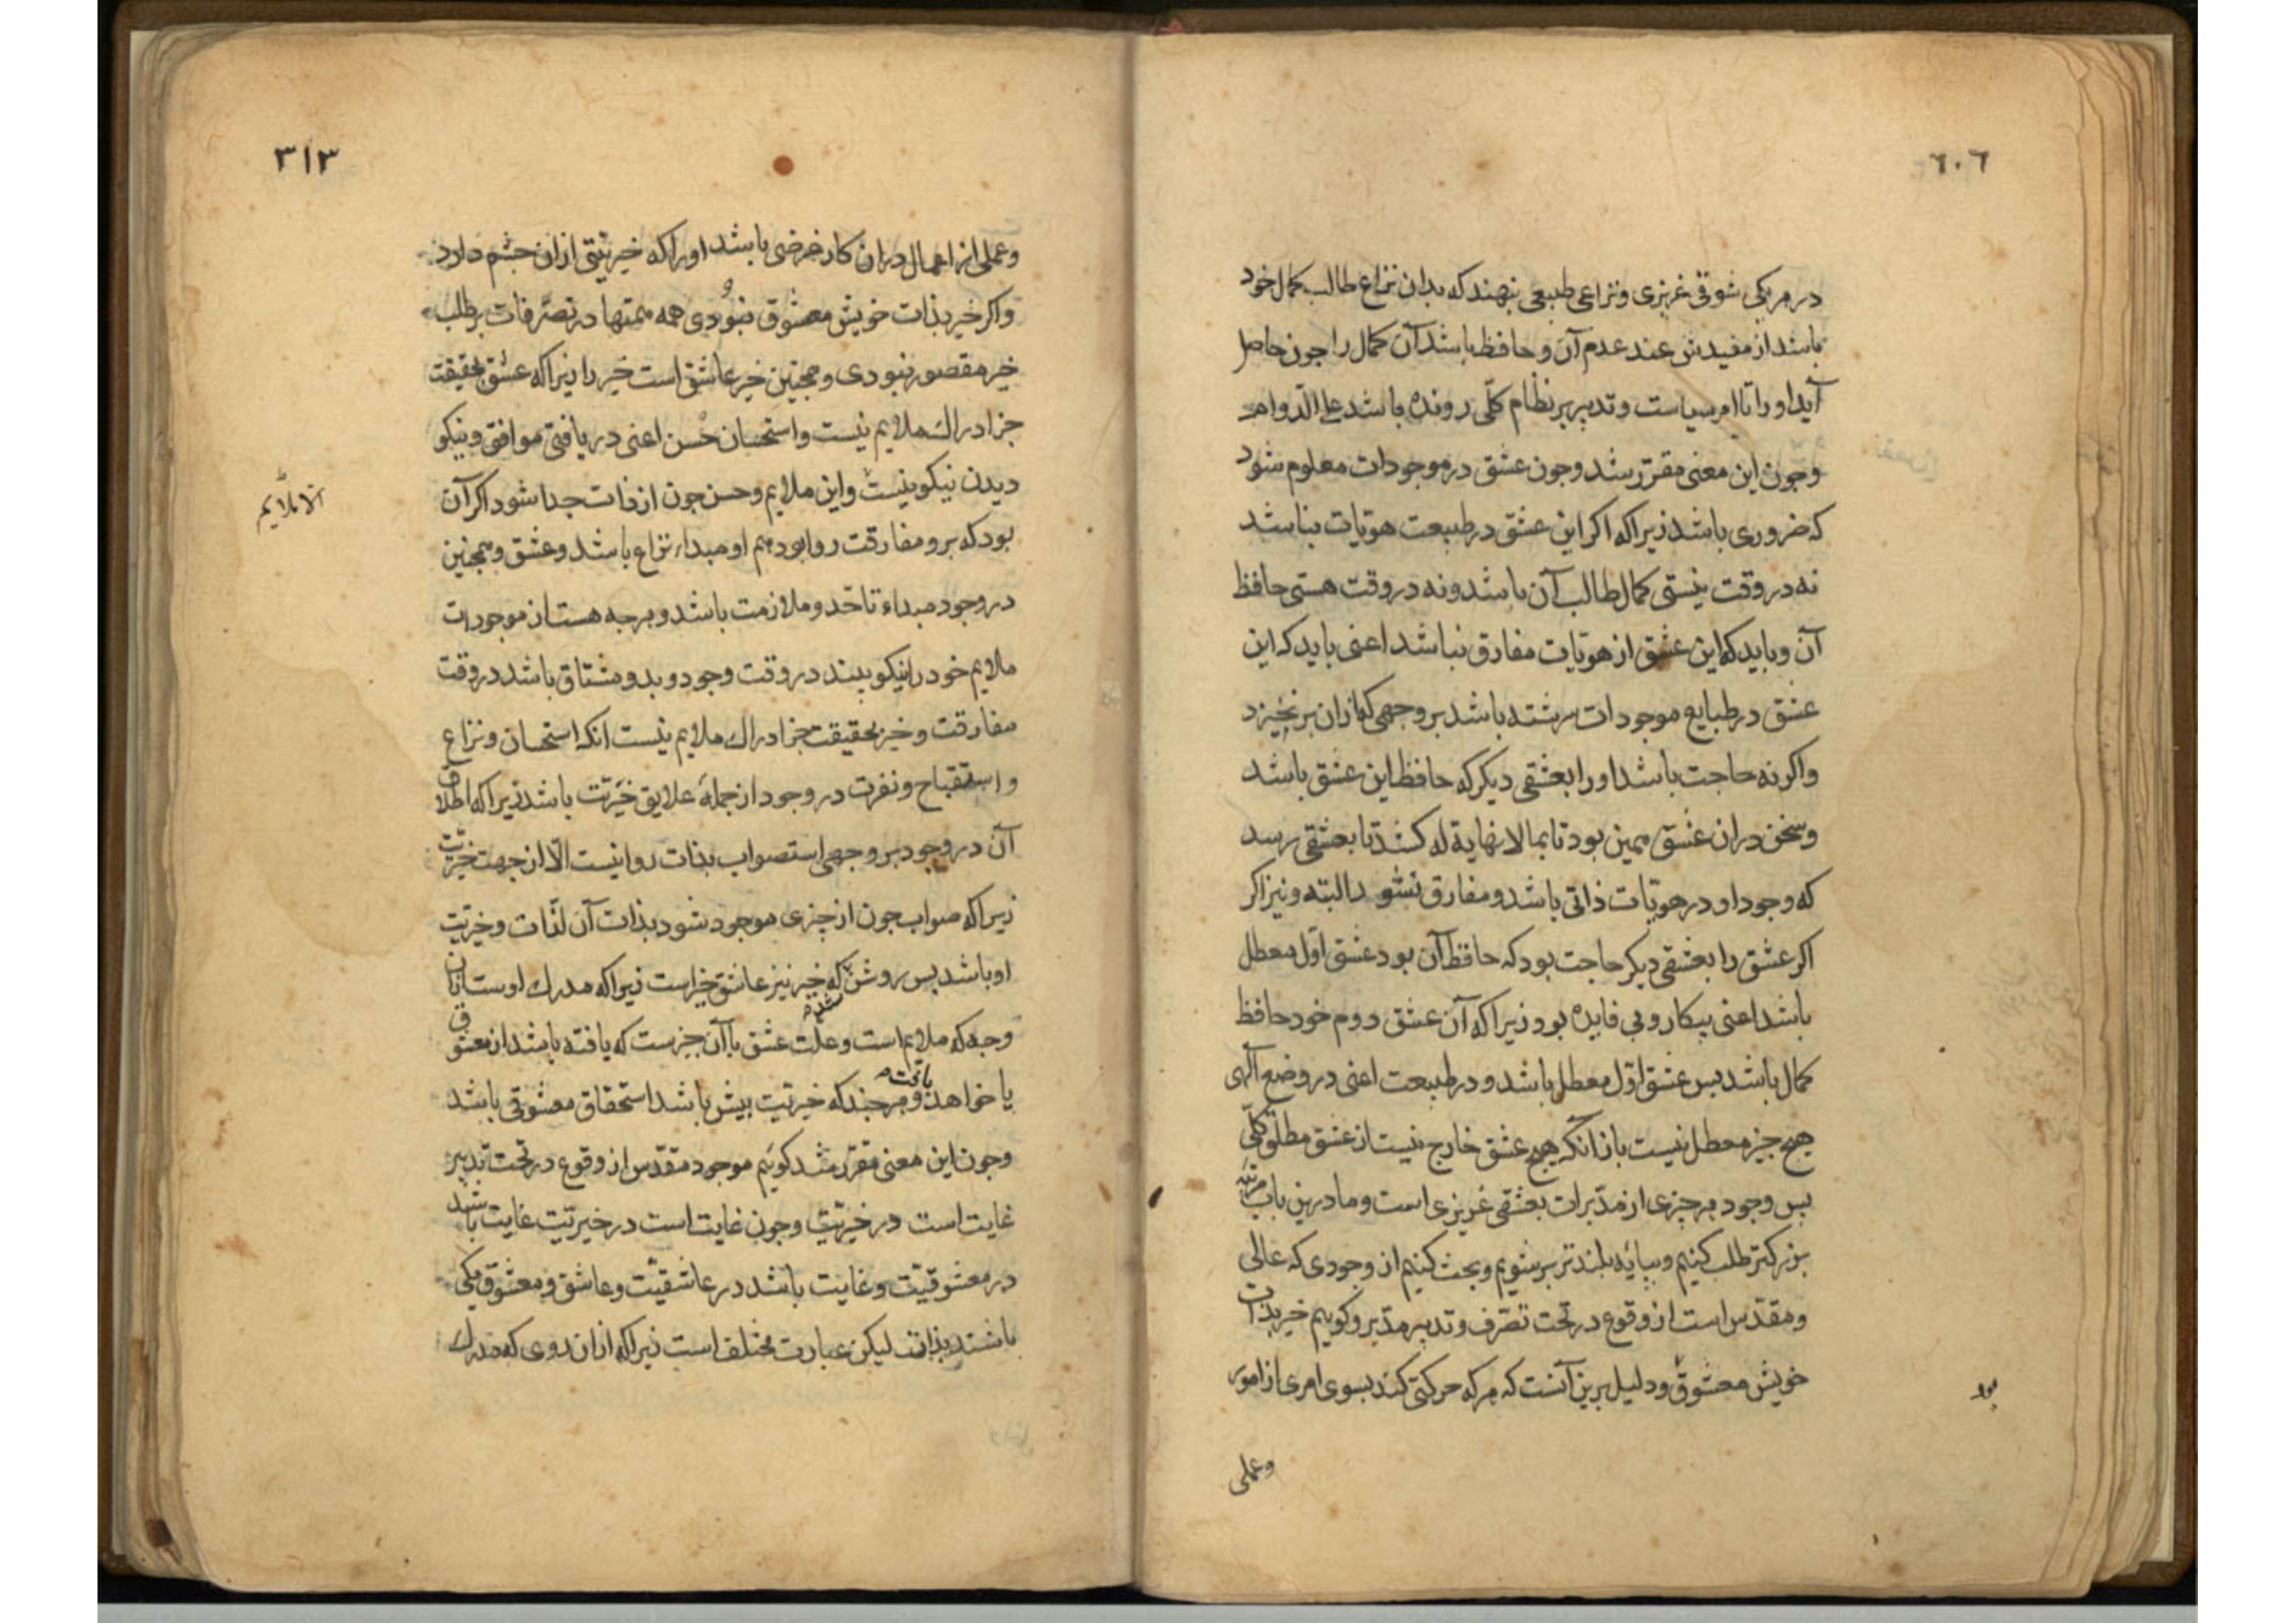 ٦٠٦
در هر یکی شوقی غریزی و نزاعی طبیعی بنهند که بدان نزاع طالب کمال خود
باشد از مفیدش عند عدم آن و حافظ باشد آن کمال را جون حاصل
آید او را تا امر سیاست و تدبیر بر نظام کلّی رونده باشد علی الدّوام
و جون این معنی مقرّر شد وجون عشق در موجودات معلوم شود
که ضروری باشد زیرا که اکر این عشق در طبیعت هویّات نباشد
نه در وقت نیستی کمال طالب آن باشد و نه در وقت هستی حافظ
آن و باید که این عشق از هویّات مفارق نباشد اعنی باید که این
عشق در طبایع موجودات سرشته باشد بر وجهی که از ان برنخیزد
واکر نه حاجت باشد او را بعشقی دیکر که حافظ این عشق باشد
وسخن دران عشق همین بود تا بما لا نهایة له کشد تا بعشقی رسد
که وجود او در هویّات ذاتی باشد و مفارق نشود البته و نیز اکر
اکر عشق را بعشقی دیکر حاجت بود که حافظ آن بود عشق اوّل معطل
باشد اعنی بیکار و بی فایده بود زیرا که آن عشق دوم خود حافظ
کمال باشد بس عشق اوّل معطل باشد و در طبیعت اعنی در وضع الهی
هیج جیز معطل نیست باز انکه هیج عشق خارج نیست از عشق مطلق کلّی
بس وجود هر جیزی از مدبّرات بعشقی غریزی است و ما درین باب مرتبهٔ
بزرکتر طلب کنیم و ببایهٔ بلندتر بر شویم و بحث کنیم از وجودی که عالی
و مقدّس است از وقوع در تحت تصرّف و تدبیر مدبّر و کوییم خیر بذات
خویش معشوق و دلیل برین آنست که هر که حرکتی کند بسوی امری از امور
بود
وعملی
٣١٣
وعملی از اعمال دران کار غرضی باشد او را که خیریّتی ازان جشم دارد
واکر خیر بذات خویش معشوق نبودی همه همتها در تصرّفات بر طلب
خیر مقصور نبودی و همجنین خیر عاشق است خیر را زیرا که عشق بحقیقت
جز ادراك ملایم نیست و استحسان حُسن اعنی دریافتن موافق و نیکو
دیدن نیکو نیست و این ملایم و حسن جون از ذات جدا شود اکر آن
بود که برو مفارقت روا بود هم او مبداء نزاع باشد و عشق و همجنین
در وجود مبداء تاحّد و ملازمت باشد و هرجه هست از موجودات
ملایم خود را نیکو بیند در وقت وجود و بدو مشتاق باشد در وقت
مفارقت و خیر بحقیقت جز ادراك ملایم نیست انکه استحسان و نزاع
و استقباح و نفرت در وجود از جملهٔ علایق خیریّت باشد زیرا که اطلاق
آن در وجود بر وجهی استصواب بذات روا نیست الّا از جهت خیریّت
زیرا که صواب جون از جیزی موجود شود بذات آن لذات و خیریّت
او باشد بس روشن شده که خیر نیز عاشق خیر است زیرا که مدرك اوست ازان
وجه که ملایم است و علّت عشق یا آن جیزست که یافته باشد از معشوق
یا خواهد یافت و هر جند که خیریّت بیش باشد استحقاق معشوقی باشد
و جون این معنی مقرّر شد کوییم موجود مقدّس از وقوع در تحت تدبیر
غایت است در خیریّت و جون غایت است در خیریّت غایت باشد
در معشوقیّت و غایت باشد در عاشقیّت و عاشق و معشوق یکی
باشند بذات لیکن عبارت مختلف است زیرا که ازان روی که مدرك